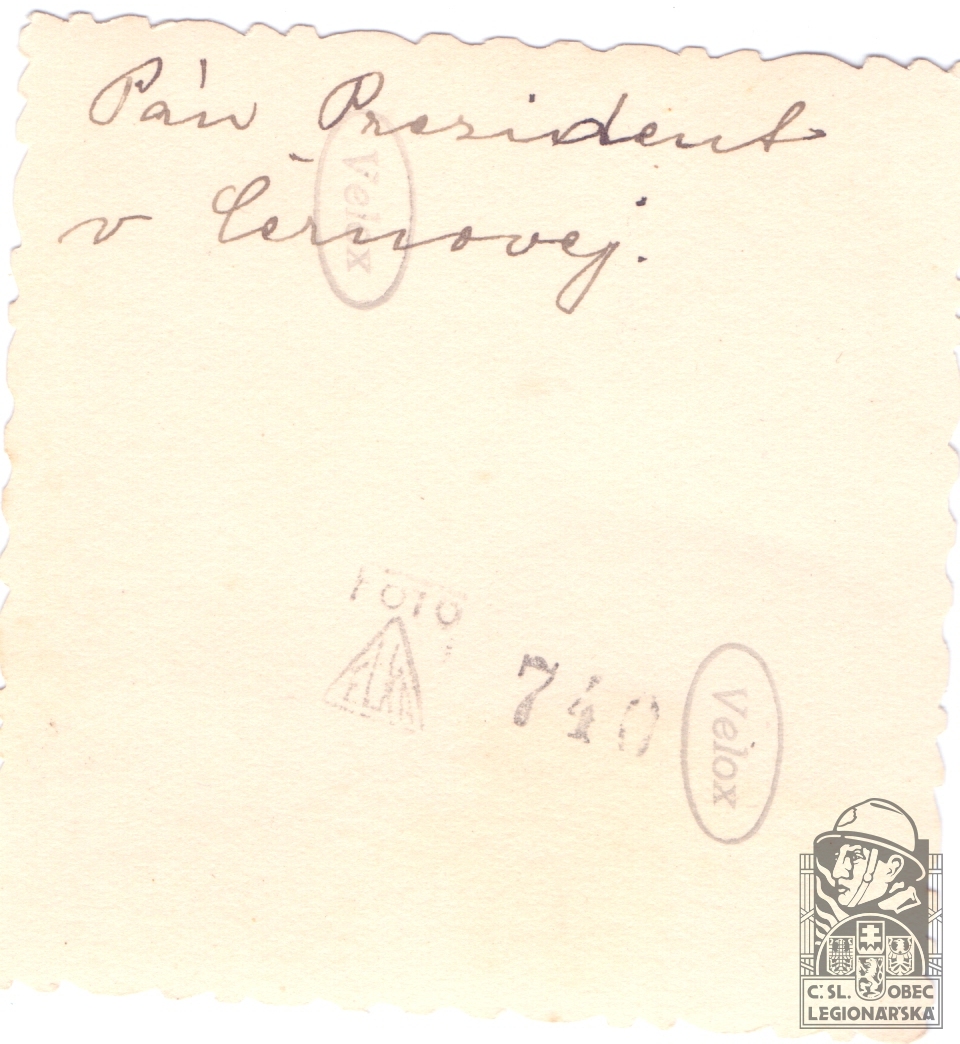 Pán Prezident
v Černovej.
Velox
FOTO
740
Velox
Č:SL. OBEC
LEGIONÁŘSKÁ